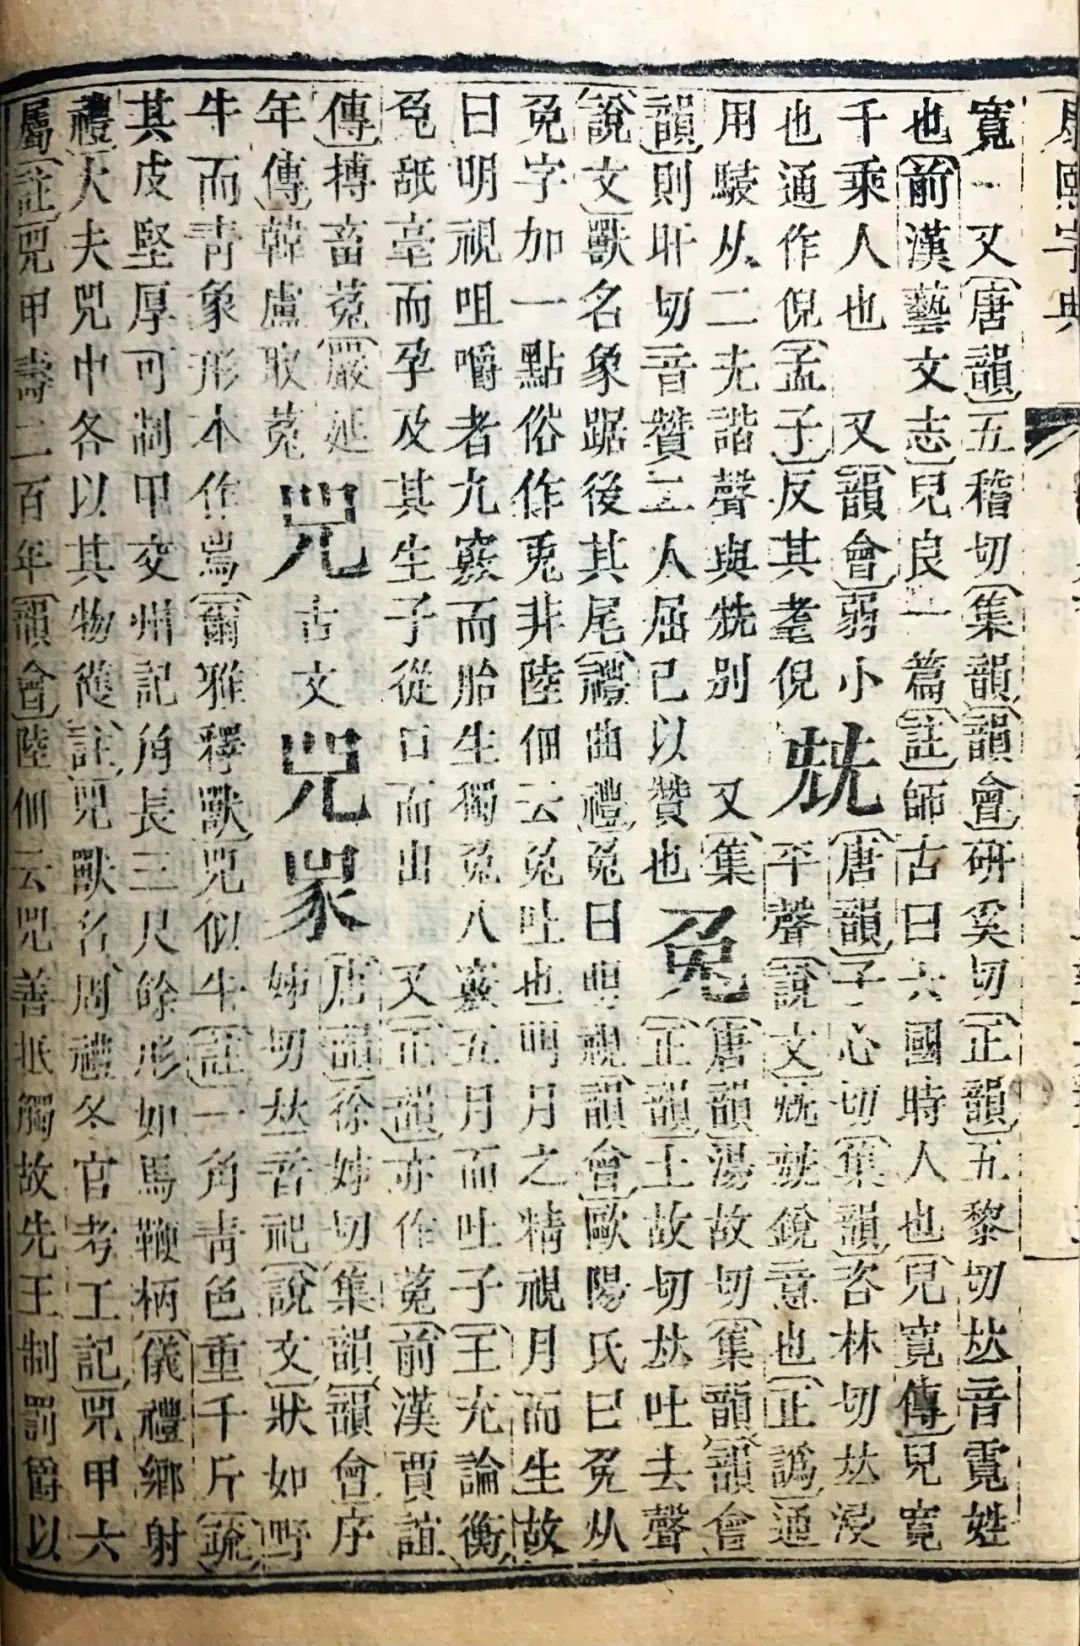 康熙字典
寬一又唐韻五稽切集韻韻會硏奚切正韻五黎切𠀤音霓姓
也前漢藝文志兒良一篇註師古曰六國時人也兒寬傳兒寬
千乘人也 又韻會弱小 唐韻子心切集韻咨林切𠀤浸
也通作倪孟子反其耄倪 兟 平聲說文兟兟銳意也正譌通
用駸从二先諧聲與兟別 又集 唐韻湯故切集韻韻會
韻則旰切音贊二人屈已以贊也 兔 正韻土故切𠀤吐去聲
說文獸名象踞後其尾禮曲禮兔曰明視韻會歐陽氏曰兔从
免字加一點俗作兎非陸佃云兔吐也明月之精視月而生故
曰明視咀嚼者九竅而胎生獨兔八竅五月而吐子王充論衡
兔舐毫而孕及其生子從口而出 又正韻亦作菟前漢賈誼
傳搏畜菟嚴延 唐韻徐姊切集韻韻會序
年傳韓盧取菟 兕 古文 𠒃 𧰽 姊切𠀤音祀說文狀如野
牛而靑象形本作𤉡爾雅釋獸兕似牛註一角靑色重千斤疏
其皮堅厚可制甲交州記角長三尺餘形如馬鞭柄儀禮鄉射
禮大夫兕中各以其物獲註兕獸名周禮冬官考工記兕甲六
屬註兕甲壽二百年韻會陸佃云兕善抵觸故先王制罰爵以